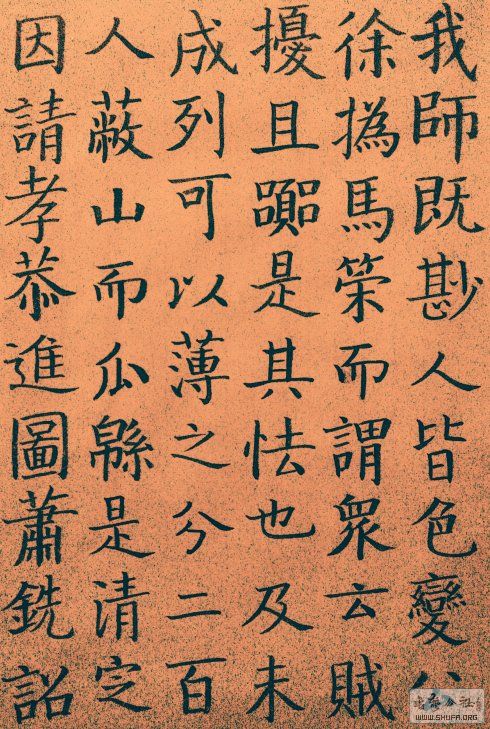 我師既尠人皆色變公
徐撝馬策而謂衆云賊
擾且是其怯也及未
成列可以薄之分二百
人蔽山而瓜緜是清定
因請孝恭進圖蕭銑詔
公社
WWW.SHUFA.ORG